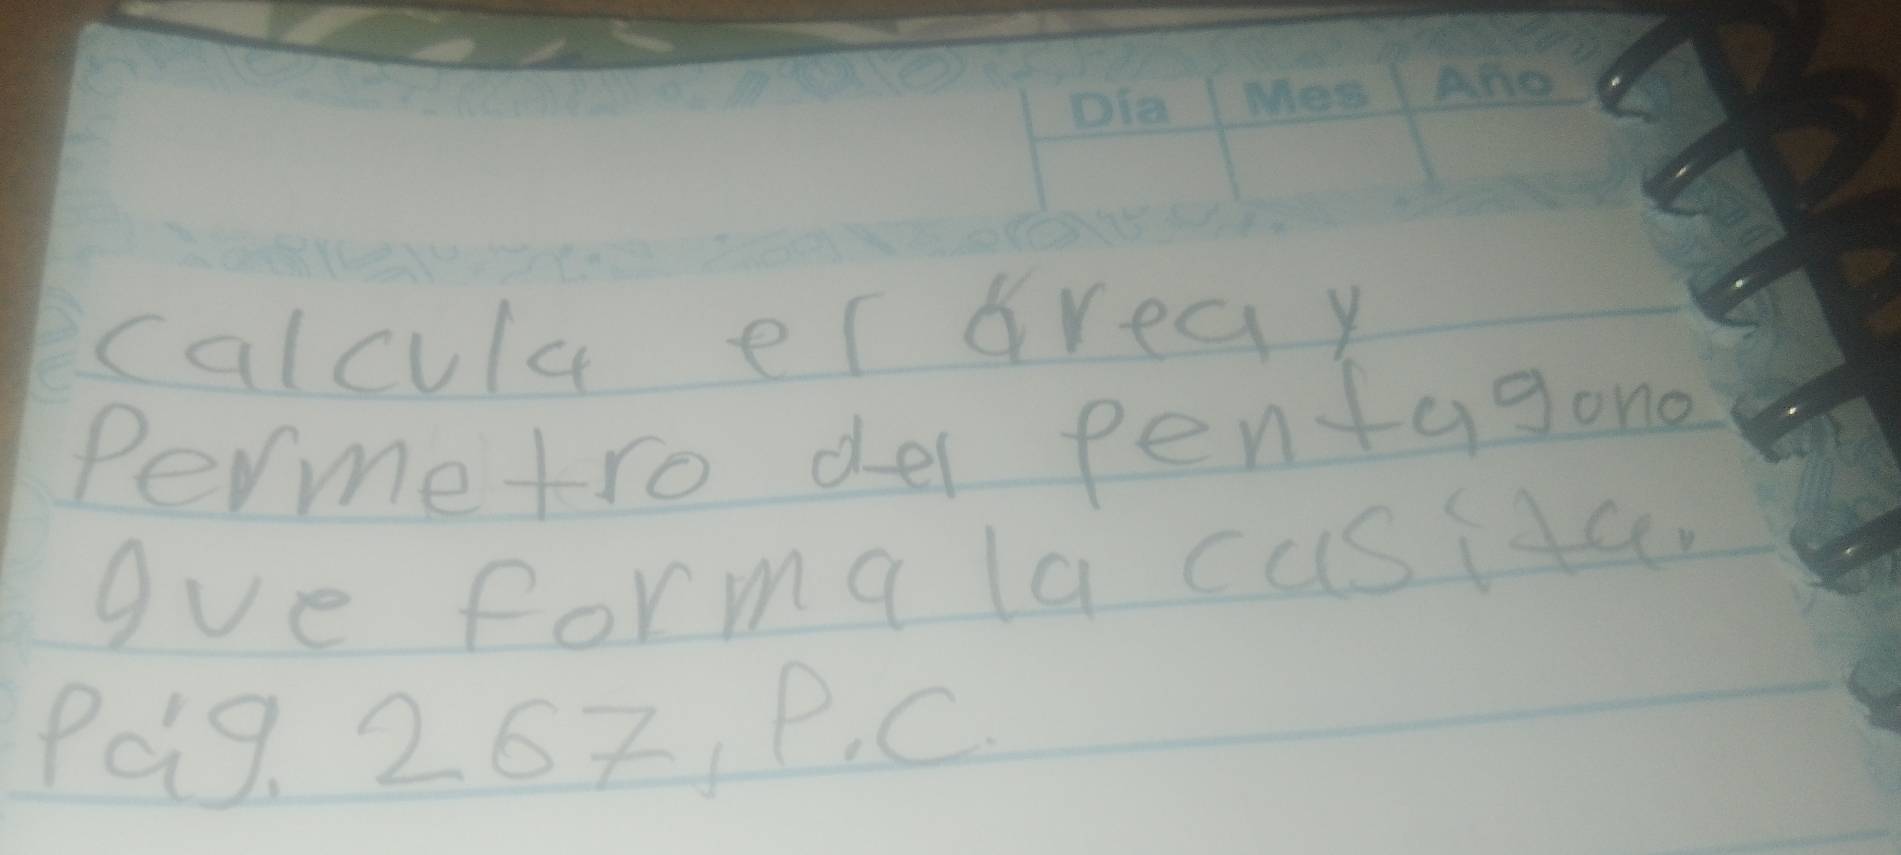 Día Mes Año
calcula el área y
Permetro del pentagono
que forma la casita.
Pág. 267, P.C.